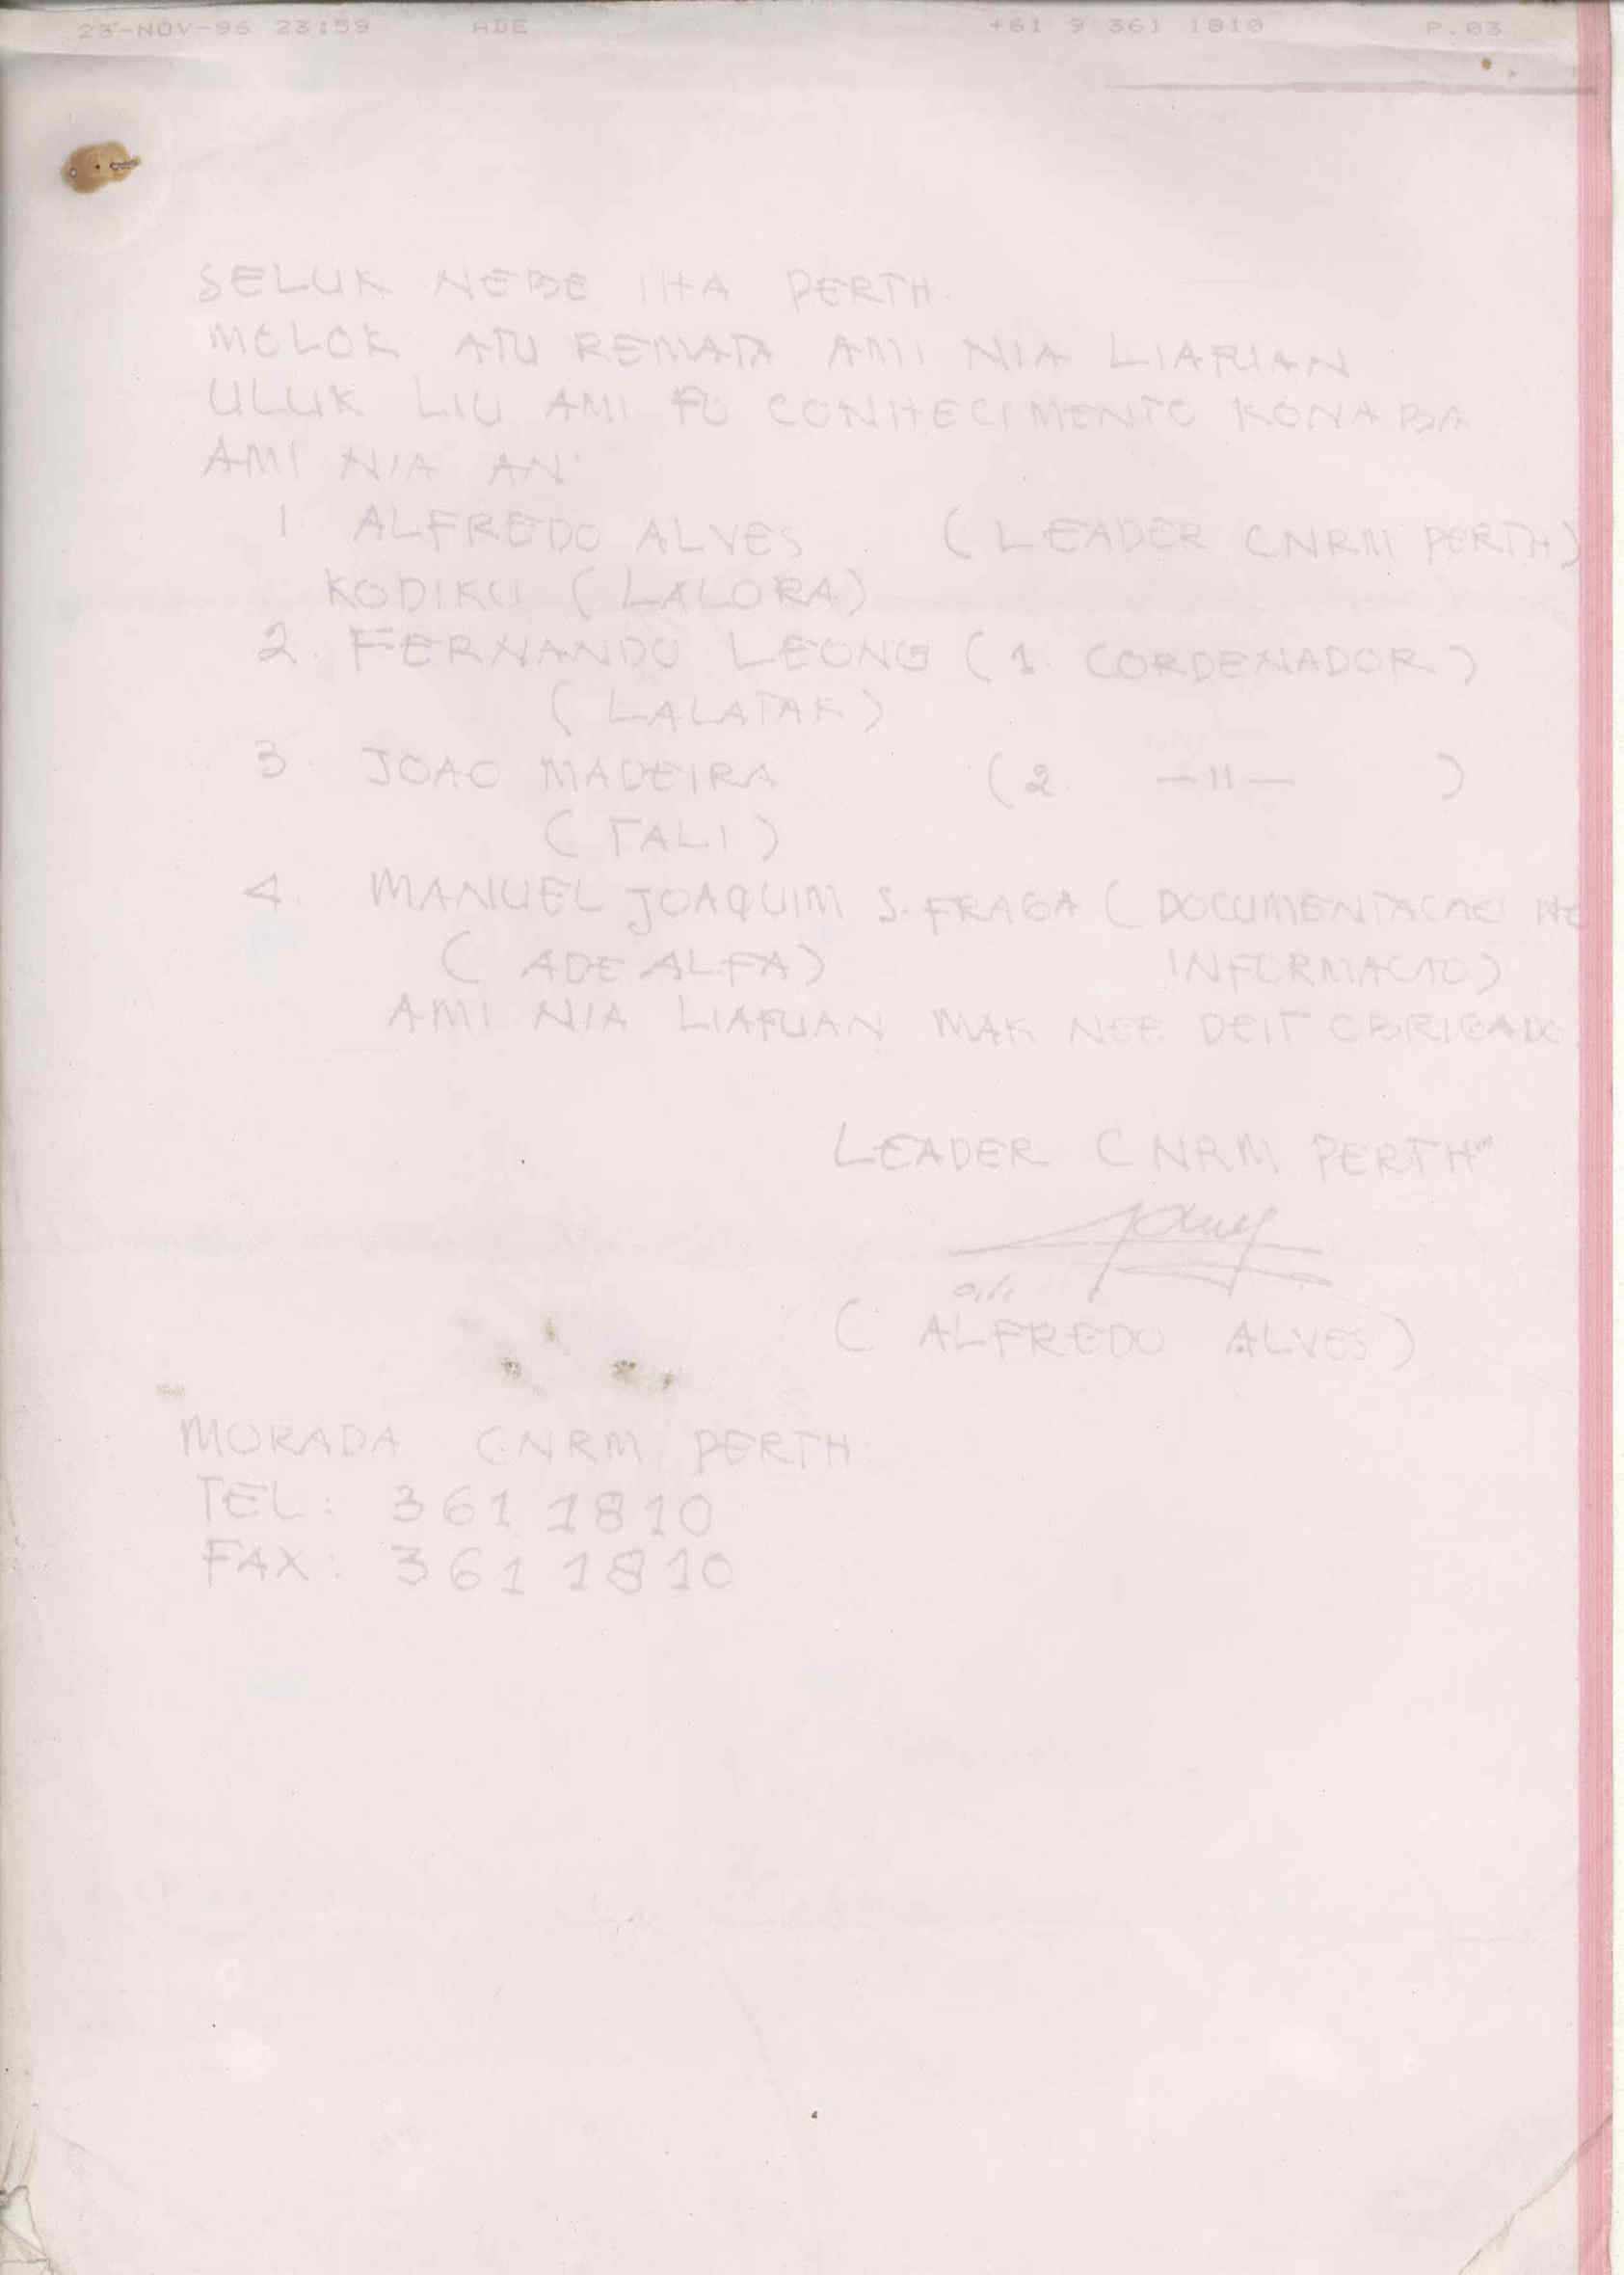 23-NOV-96 23:59 ADE +61 9 361 1810 P.03
SELUK NEBE IHA PERTH.
MOLOK ATU REMATA AMI NIA LIAFUAN
ULUK LIU AMI FO CONHECIMENTO KONA BA
AMI NIA AN
1. ALFREDO ALVES (LEADER CNRM PERTH)
KODIKU (LALORA)
2. FERNANDO LEONG (1. CORDENADOR)
(LALATAK)
3 JOAO MADEIRA (2. —11— )
(TALI)
4. MANUEL JOAQUIM S. FRAGA (DOCUMENTACAO
(ADE ALFA) INFORMACAO)
AMI NIA LIAFUAN MAK NEE DEIT OBRIGADO
LEADER CNRM PERTH
(ALFREDO ALVES)
MORADA CNRM PERTH
TEL: 361 1810
FAX: 361 1810